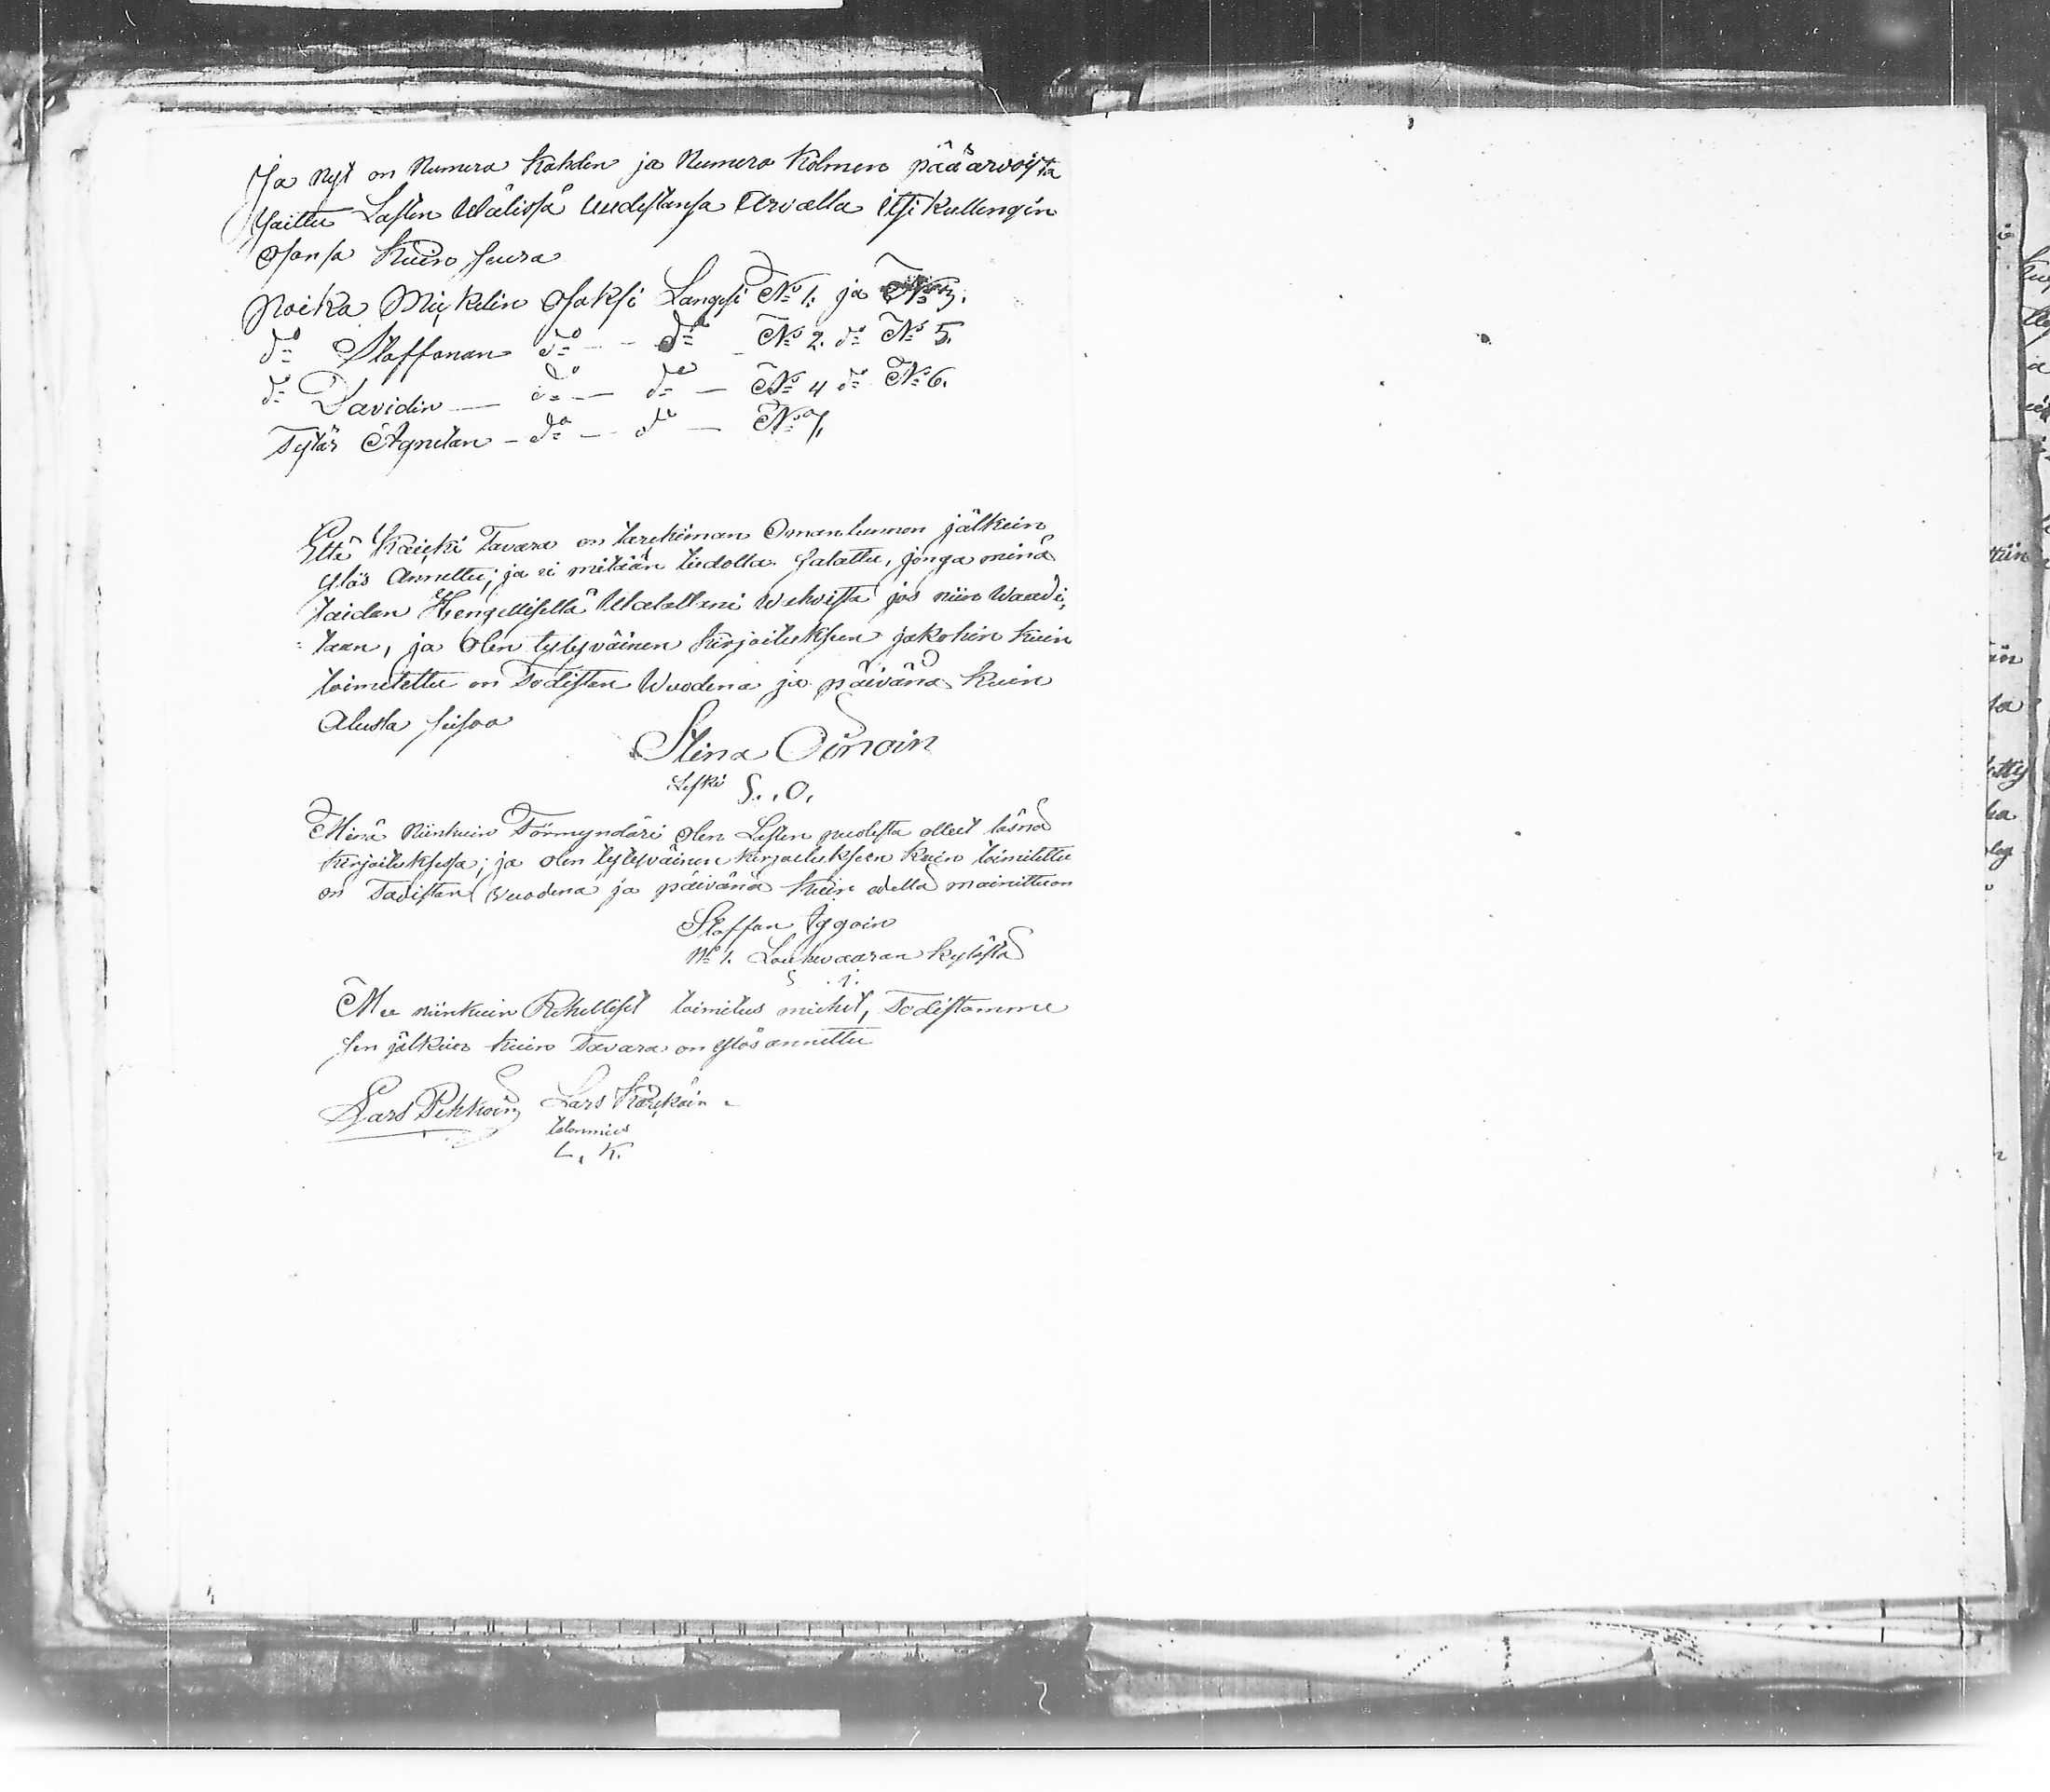 Ja nyt on Numero Kahden ja Numero Kolmen pääarvoista
Jaittu Lasten Wälissä uudistansa Arvalla itsikullengin
Osansa kuin seura
Poika Mickelin Osaksi Langesi No 1. ja No 3.
do Staffanan do - - do - No 2. do No 5.
do Davidin — do — do — No 4 do No 6.
Tytär Agnetan - do — do — No 7.
Että Kaicki Tavara on tarckiman Omantunnon jälkein
ylös Annettu; ja ei mitään tiedolla salattu, jonga minä
taidan Hengellisellä Walallani wahvista jos niin Waadi-
: taan, ja Olen tytyväinen kirjoituksen jakohin kuin
toimitettu on Todistan Wuodena ja päivänä kuin
Alusta seisoo
Stina Oinoin
Leski S. O.
Minä Niinkuin Förmyndäri olen Lasten puolesta olleet läsnä
kirjoituksesa; ja olen tytyväinen kirjoitukseen kuin toimitettu
on Todistan Wuodena ja päivänä kuin edellä mainittu on
Staffan Iggoin
No 1. Louhivaaran kylästä
S. I.
Me niinkuin Rehelliset toimitus miehet, Todistamme
sen jälkein kuin Tavara on ylös annettu
Lars Pehkoin Lars Karckoin
L. K.